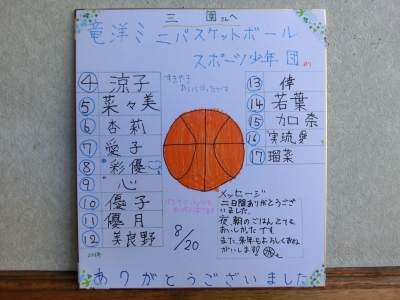 三 園 さんへ
竜洋ミニバスケットボール
スポーツ少年団 より
④ 涼子
⑤ 菜々美
⑥ 杏莉
⑦ 愛子
⑧ 彩優
⑨ 心
⑩ 優子
⑪ 優月
⑫ 美良野
⑬ 倖
⑭ 若葉
⑮ 加奈
⑯ 実流
⑰ 瑠菜
8/20
メッセージ
二日間ありがとうござ
いました。
夜、朝のごはんとても
おいしかったです
また、来年もよろしくおね
がいします!!
ありがとうございました